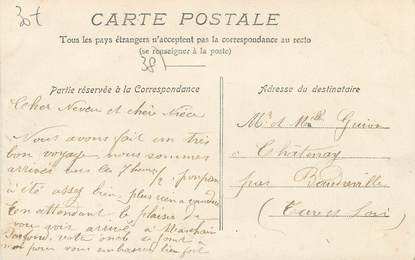 30f
CARTE POSTALE
Tous les pays étrangers n'acceptent pas la correspondance au recto
(se renseigner à la poste)
38
Partie réservée à la Correspondance
Adresse du destinataire
Cher Neveu et chère Nièce
Nous avons fait un très
bon voyage nous sommes
arrivés vers les 7 heures
été assez bien plus rien a
En attendant le plaisir de
vous voir arrivé à
votre oncle se joint à
moi pour vous embrasser bien fort
Mr et Melle Guion
à Châtenay
par Baudreville
(Eure et Loir)